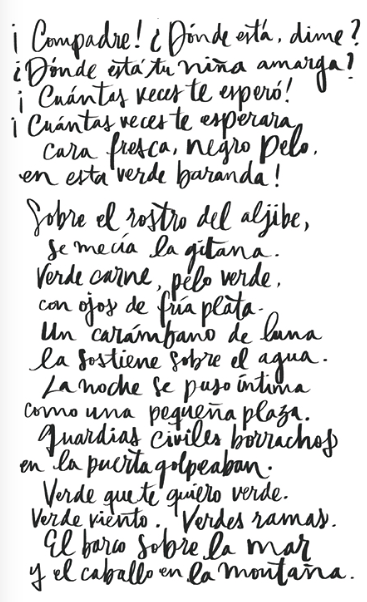 ¡ Compadre! ¿Dónde está, dime?
¿Dónde está tu niña amarga?
¡ Cuántas veces te esperó!
¡ Cuántas veces te esperara,
cara fresca, negro pelo,
en esta verde baranda!
Sobre el rostro del aljibe,
se mecía la gitana.
Verde carne, pelo verde,
con ojos de fría plata.
Un carámbano de luna
la sostiene sobre el agua.
La noche se puso íntima
como una pequeña plaza.
Guardias civiles borrachos
en la puerta golpeaban.
Verde que te quiero verde.
Verde viento. Verdes ramas.
El barco sobre la mar
y el caballo en la montaña.